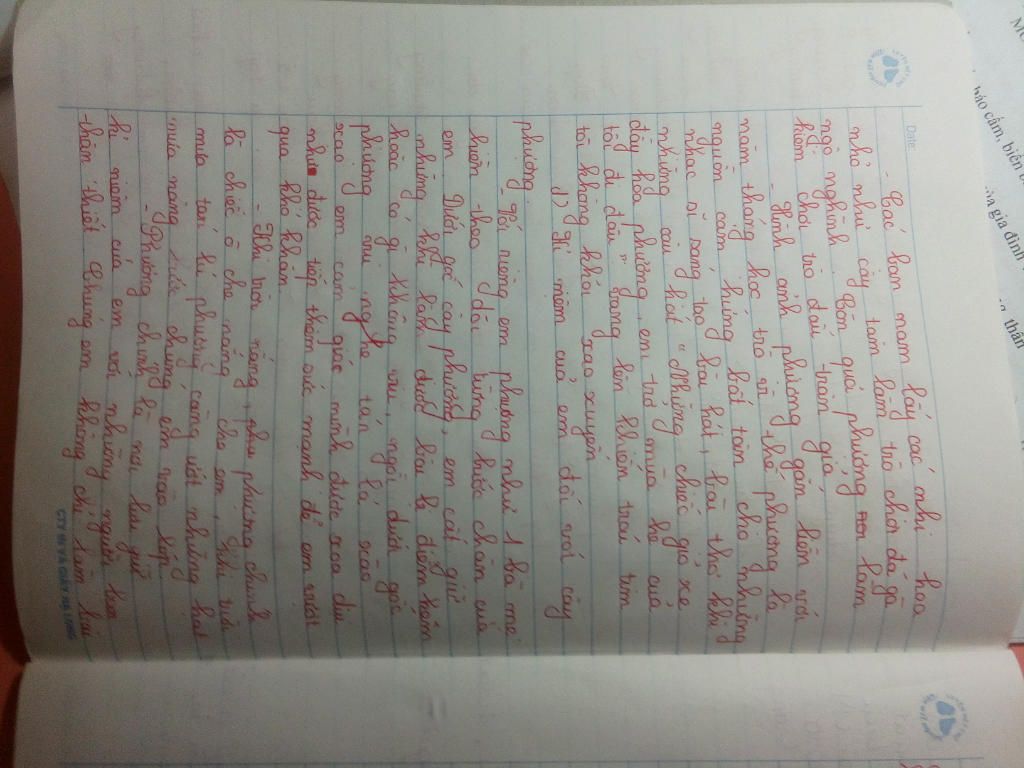 Date:
- Các bạn nam lấy các nhị hoa
nhỏ như cây tăm làm trò chơi đá gà
ngộ nghĩnh. Còn quả phượng làm
kiếm chơi trò đấu trận giả
- Hình ảnh phượng gắn liền với
năm tháng học trò vì thế phượng là
nguồn cảm hứng bất tận cho những
nhạc sĩ sáng tạo bài hát, bài thơ khi
những câu hát "Những chiếc giỏ xe
đầy hoa phượng, em trở mùa hè của
tôi đi đâu" vang lên khiến trái tim
tôi không khỏi xao xuyến
d) Kỉ niệm của em đối với cây
phượng.
- Tôi riêng em phượng như 1 bà mẹ
hiền thoa dãi từng bước chân của
em Dưới gốc cây phượng, em cất giữ
những khi làm được bài bị điểm kém
hoặc có gì không vui, ngồi dưới gốc
phượng vui nghe tán lá xao
xao em cảm giác mình được xoa dịu
như được tiếp thêm sức mạnh để em vượt
qua khó khăn
- Khi trời nắng, phượng chính
là chiếc ô che nắng cho em, khi trời
mưa tán lá phượng càng ướt những hạt
mưa nặng chúng em vào lớp
- Phượng chính là nơi lưu giữ
kỉ niệm của em với những người bạn
thân thiết Chúng em không chỉ làm bài
CTY TNHH GIẤY HẠ LONG